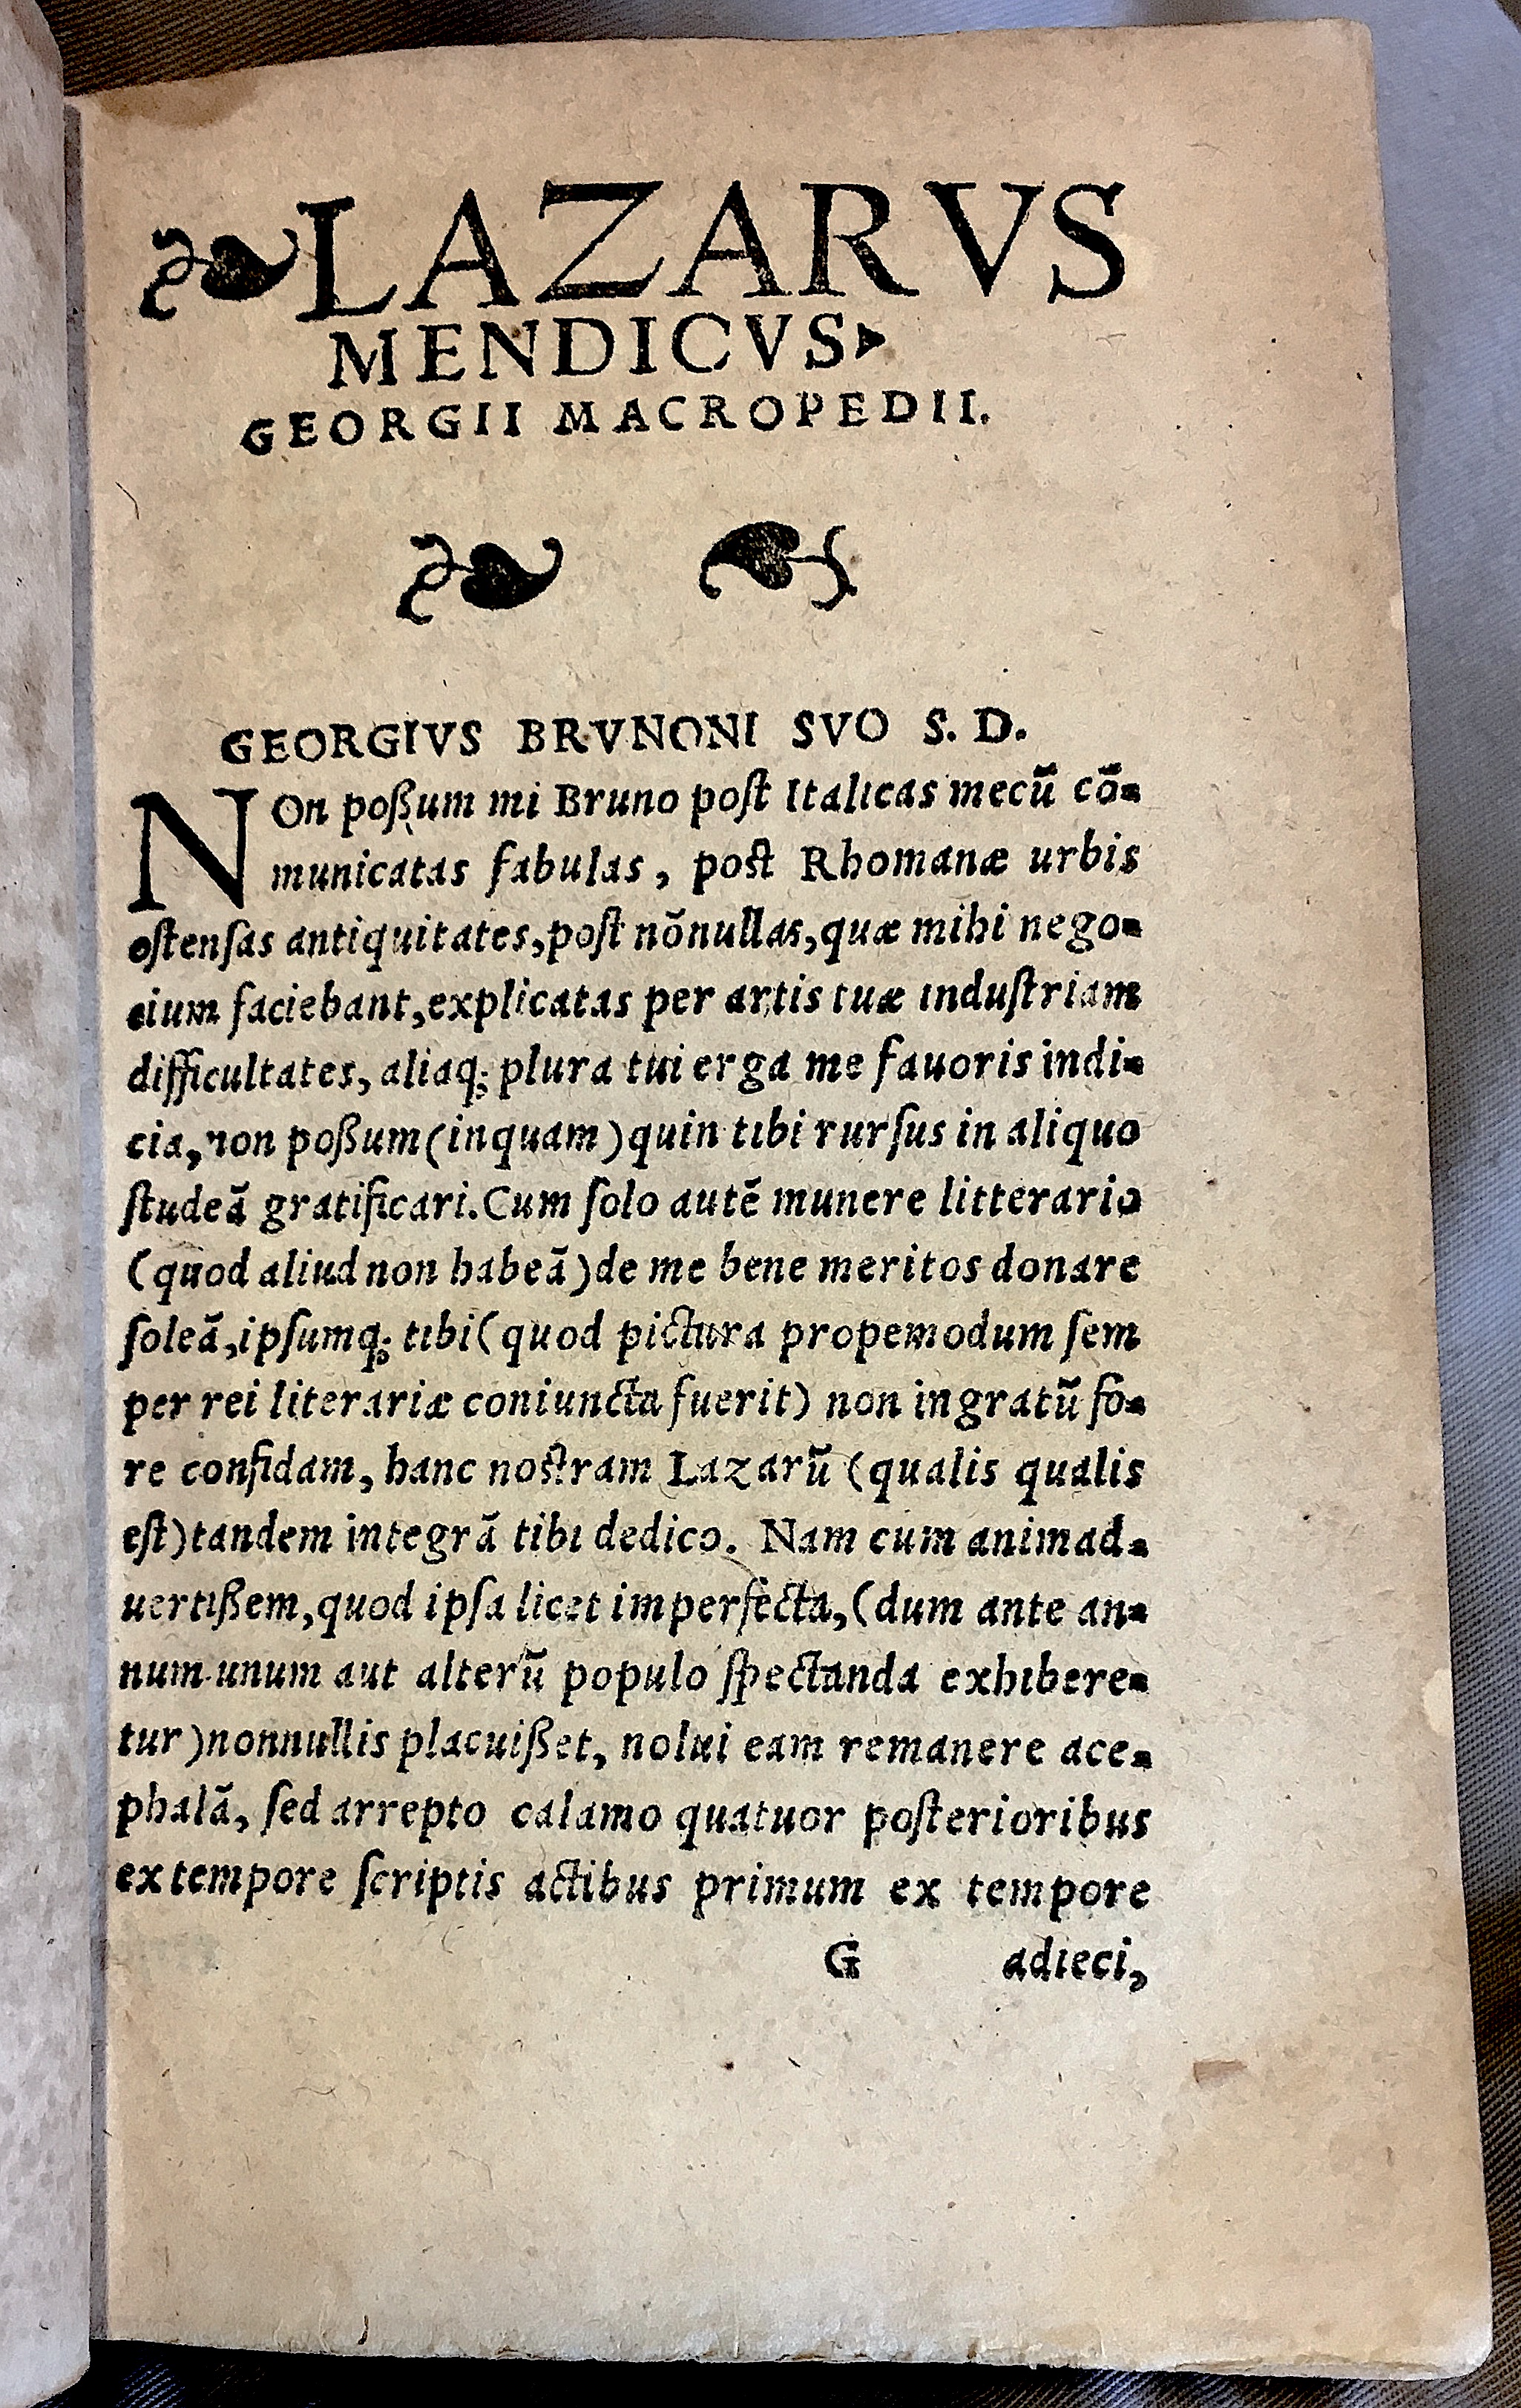 ❧LAZARVS
MENDICVS
GEORGII MACROPEDII.
GEORGIVS BRVNONI SVO S. D.
NOn poßum mi Bruno poſt Italicas mecū cō-
municatas fabulas, post Rhomanæ urbis
oſtenſas antiquitates, poſt nōnullas, quæ mihi nego-
cium faciebant, explicatas per artis tuæ induſtriam
difficultates, aliaq; plura tui erga me fauoris indi-
cia, non poßum (inquam) quin tibi rurſus in aliquo
ſtudeā gratificari. Cum ſolo autē munere litterario
(quod aliud non habeā) de me bene meritos donare
ſoleā, ipſumq; tibi (quod pictura propemodum ſem
per rei literariæ coniuncta fuerit) non ingratū fo-
re confidam, hanc nostram Lazarū (qualis qualis
eſt) tandem integrā tibi dedico. Nam cum animad-
uertißem, quod ipſa licet imperfecta, (dum ante an-
num unum aut alterū populo ſpectanda exhibere-
tur) nonnullis placuißet, nolui eam remanere ace-
phalā, ſed arrepto calamo quatuor poſterioribus
ex tempore ſcriptis actibus primum ex tempore
G adieci,